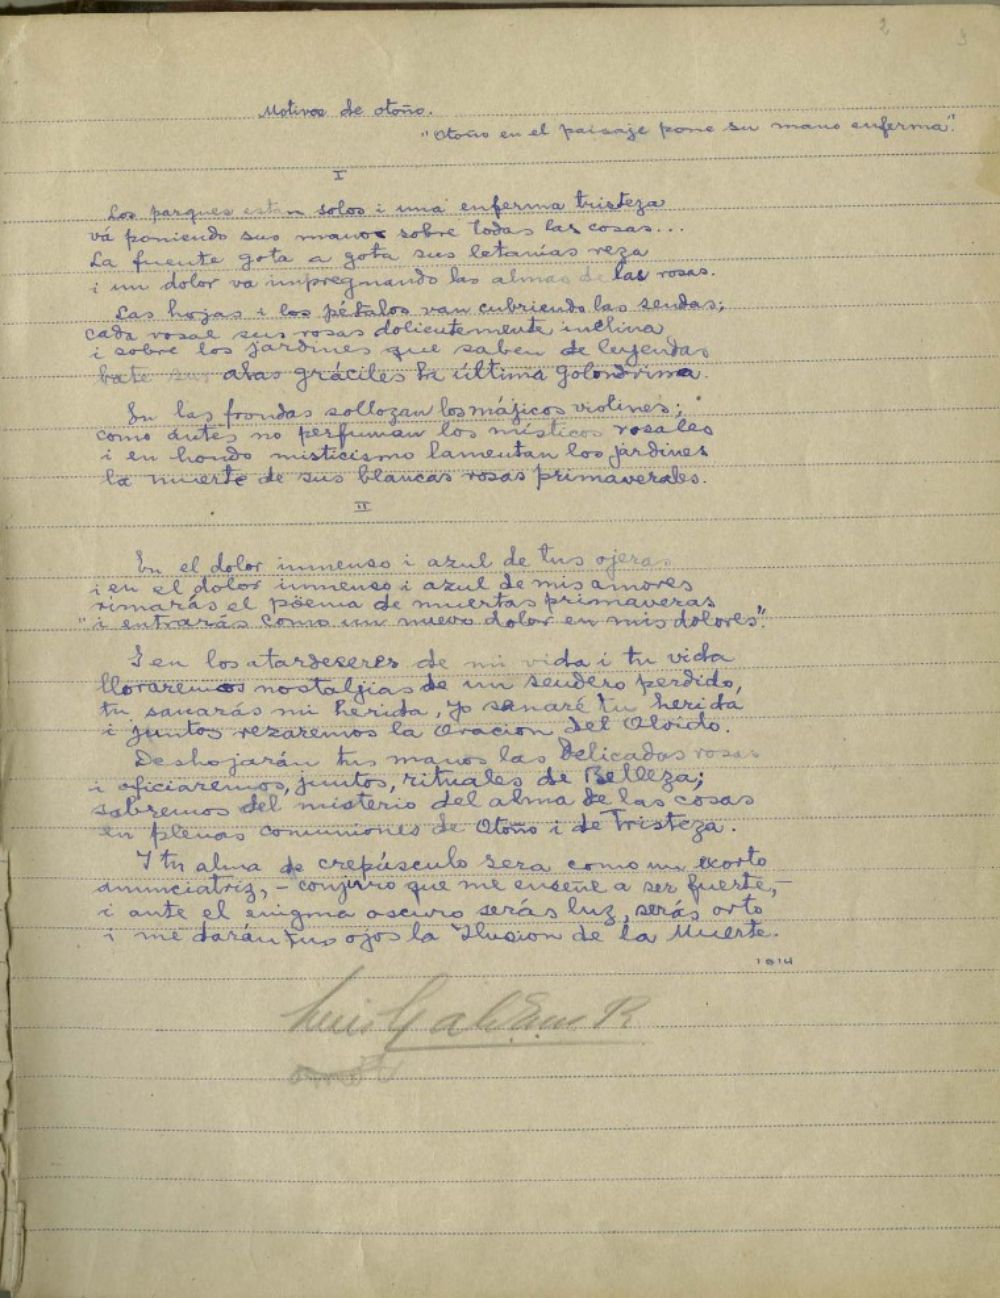 2 3
Motivos de otoño.
"Otoño en el paisaje pone su mano enferma".
I
Los parques estan solos i una enferma tristeza
vá poniendo sus manos sobre todas las cosas...
La fuente gota a gota sus letanías reza
i un dolor va impregnando las almas de las rosas.
Las hojas i los pétalos van cubriendo las sendas;
cada rosal sus rosas dolientemente inclina
i sobre los jardines que saben de leyendas
bate sus alas gráciles la última golondrina.
En las frondas sollozan los májicos violines;
como antes no perfuman los místicos rosales
i en hondo misticismo lamentan los jardines
la muerte de sus blancas rosas primaverales.
II
En el dolor inmenso i azul de tus ojeras
i en el dolor inmenso i azul de mis amores
rimarás el pöema de muertas primaveras
"i entrarás como un nuevo dolor en mis dolores".
I en los atardeseres de mi vida i tu vida
lloraremos nostaljias de un sendero perdido,
tu sanarás mi herida, yo sanaré tu herida
i juntos rezaremos la Oracion del Olvido.
Deshojarán tus manos las delicadas rosas
i oficiaremos, juntos, rituales de Belleza;
sabremos del misterio del alma de las cosas
en plenas comuniones de Otoño i de Tristeza.
I tu alma de crepúsculo sera como un exorto
anunciatriz, - conjuro que me enseñe a ser fuerte,-
i ante el enigma oscuro serás luz, serás orto
i me darán tus ojos la Ilusion de la Muerte.
1914